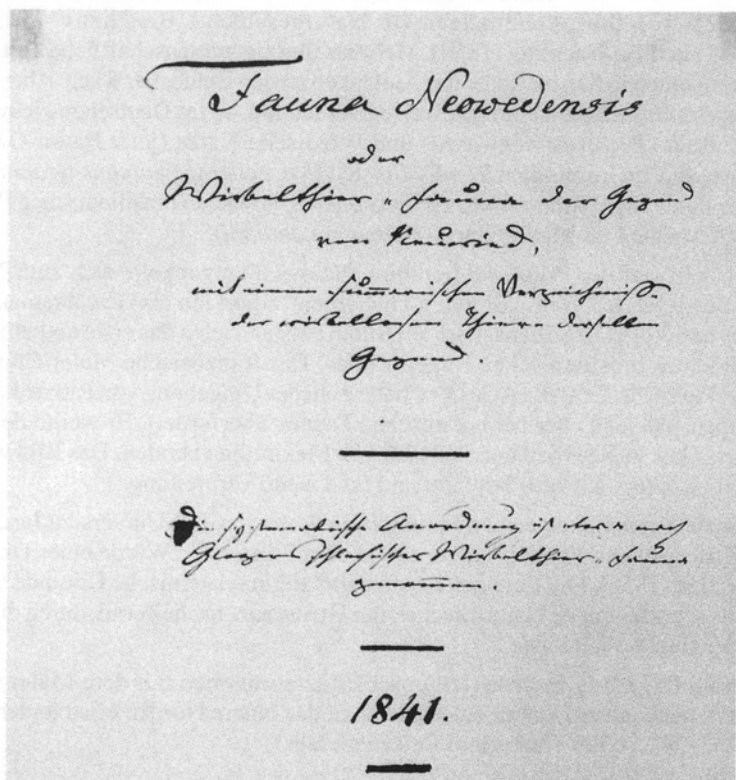 Fauna Neowedensis
oder
Wirbelthier-Fauna der Gegend
von Neuwied,
mit einem summarischen Verzeichniss
der wirbellosen Thiere derselben
Gegend
Die systematische Anordnung ist etwa nach
Schlesischer Wirbelthier-Fauna
genommen
1841.